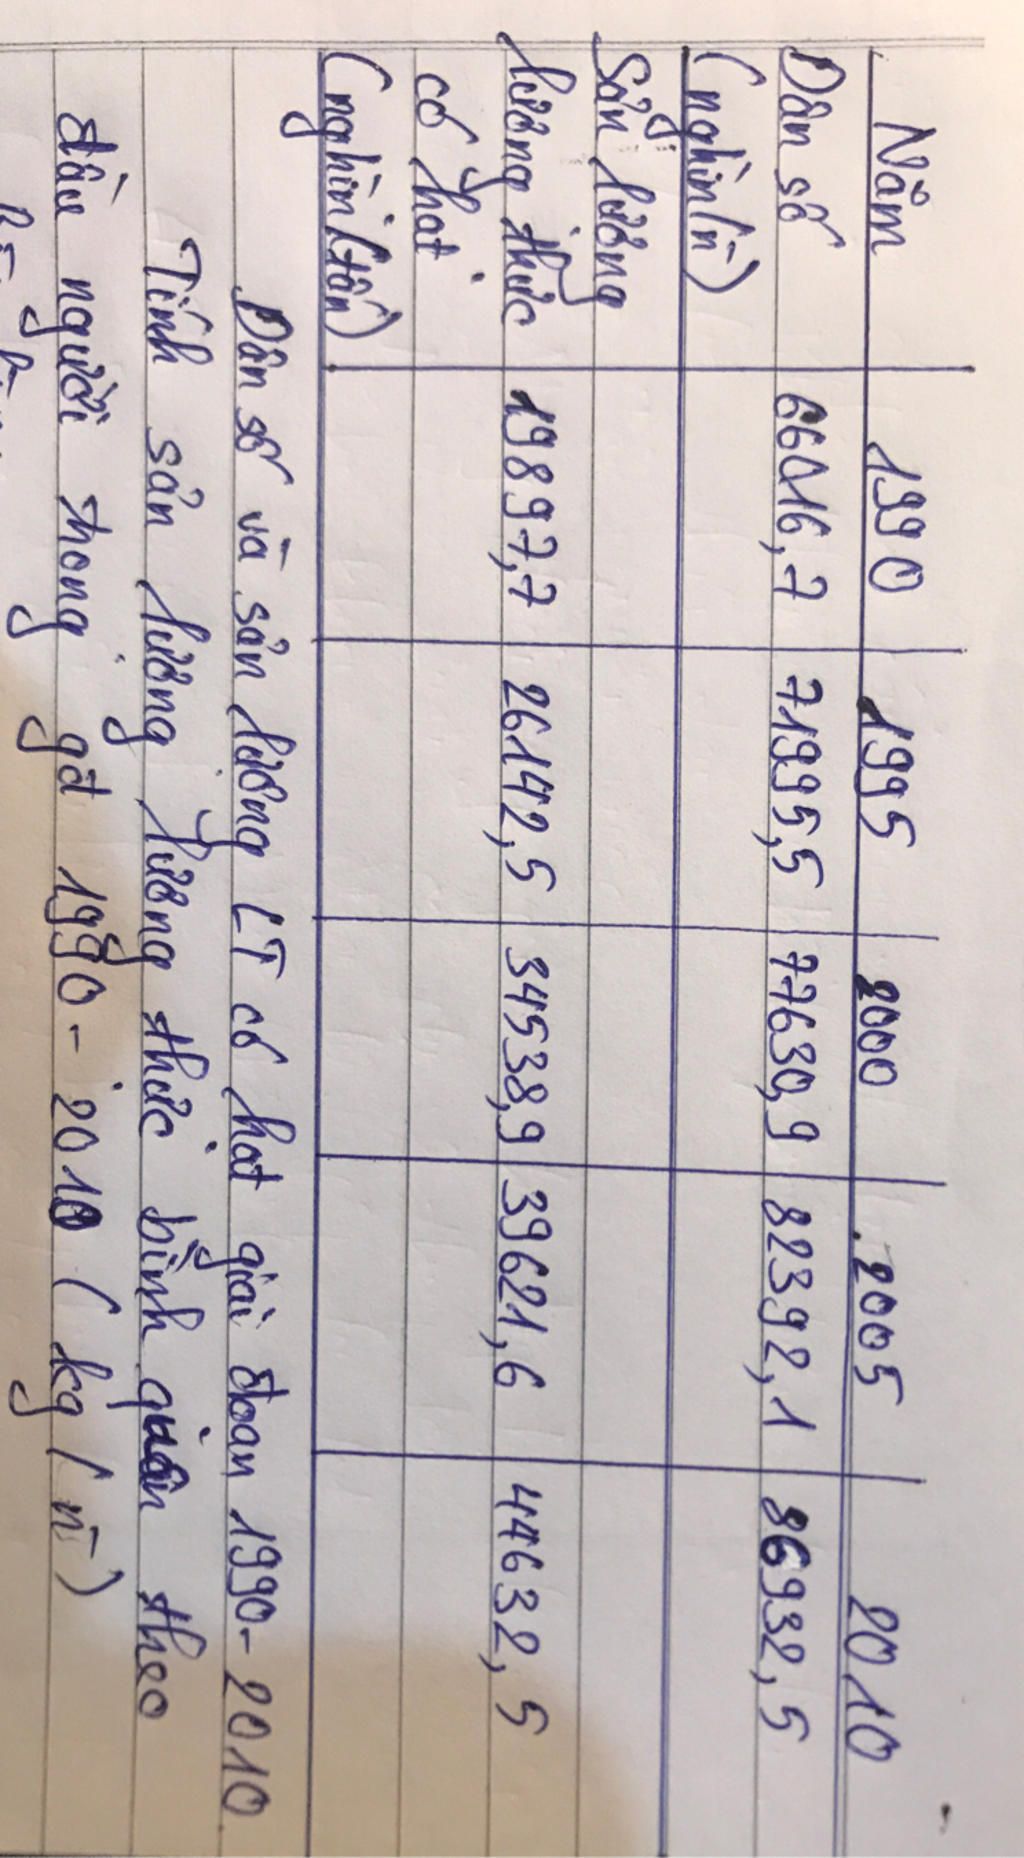 Năm 1990 1995 2000 2005 2010
Dân số 66016,7 71995,5 77630,9 82392,1 86932,5
(nghìn/n̄)
Sản lượng
lương thực 19897,7 26142,5 34538,9 39621,6 44632,5
có hạt
(nghìn/tấn)
Dân số và sản lượng LT có hạt giai đoạn 1990-2010
Tính sản lượng lương thực bình quân theo
đầu người trong gđ 1990-2010 (kg/n̄)